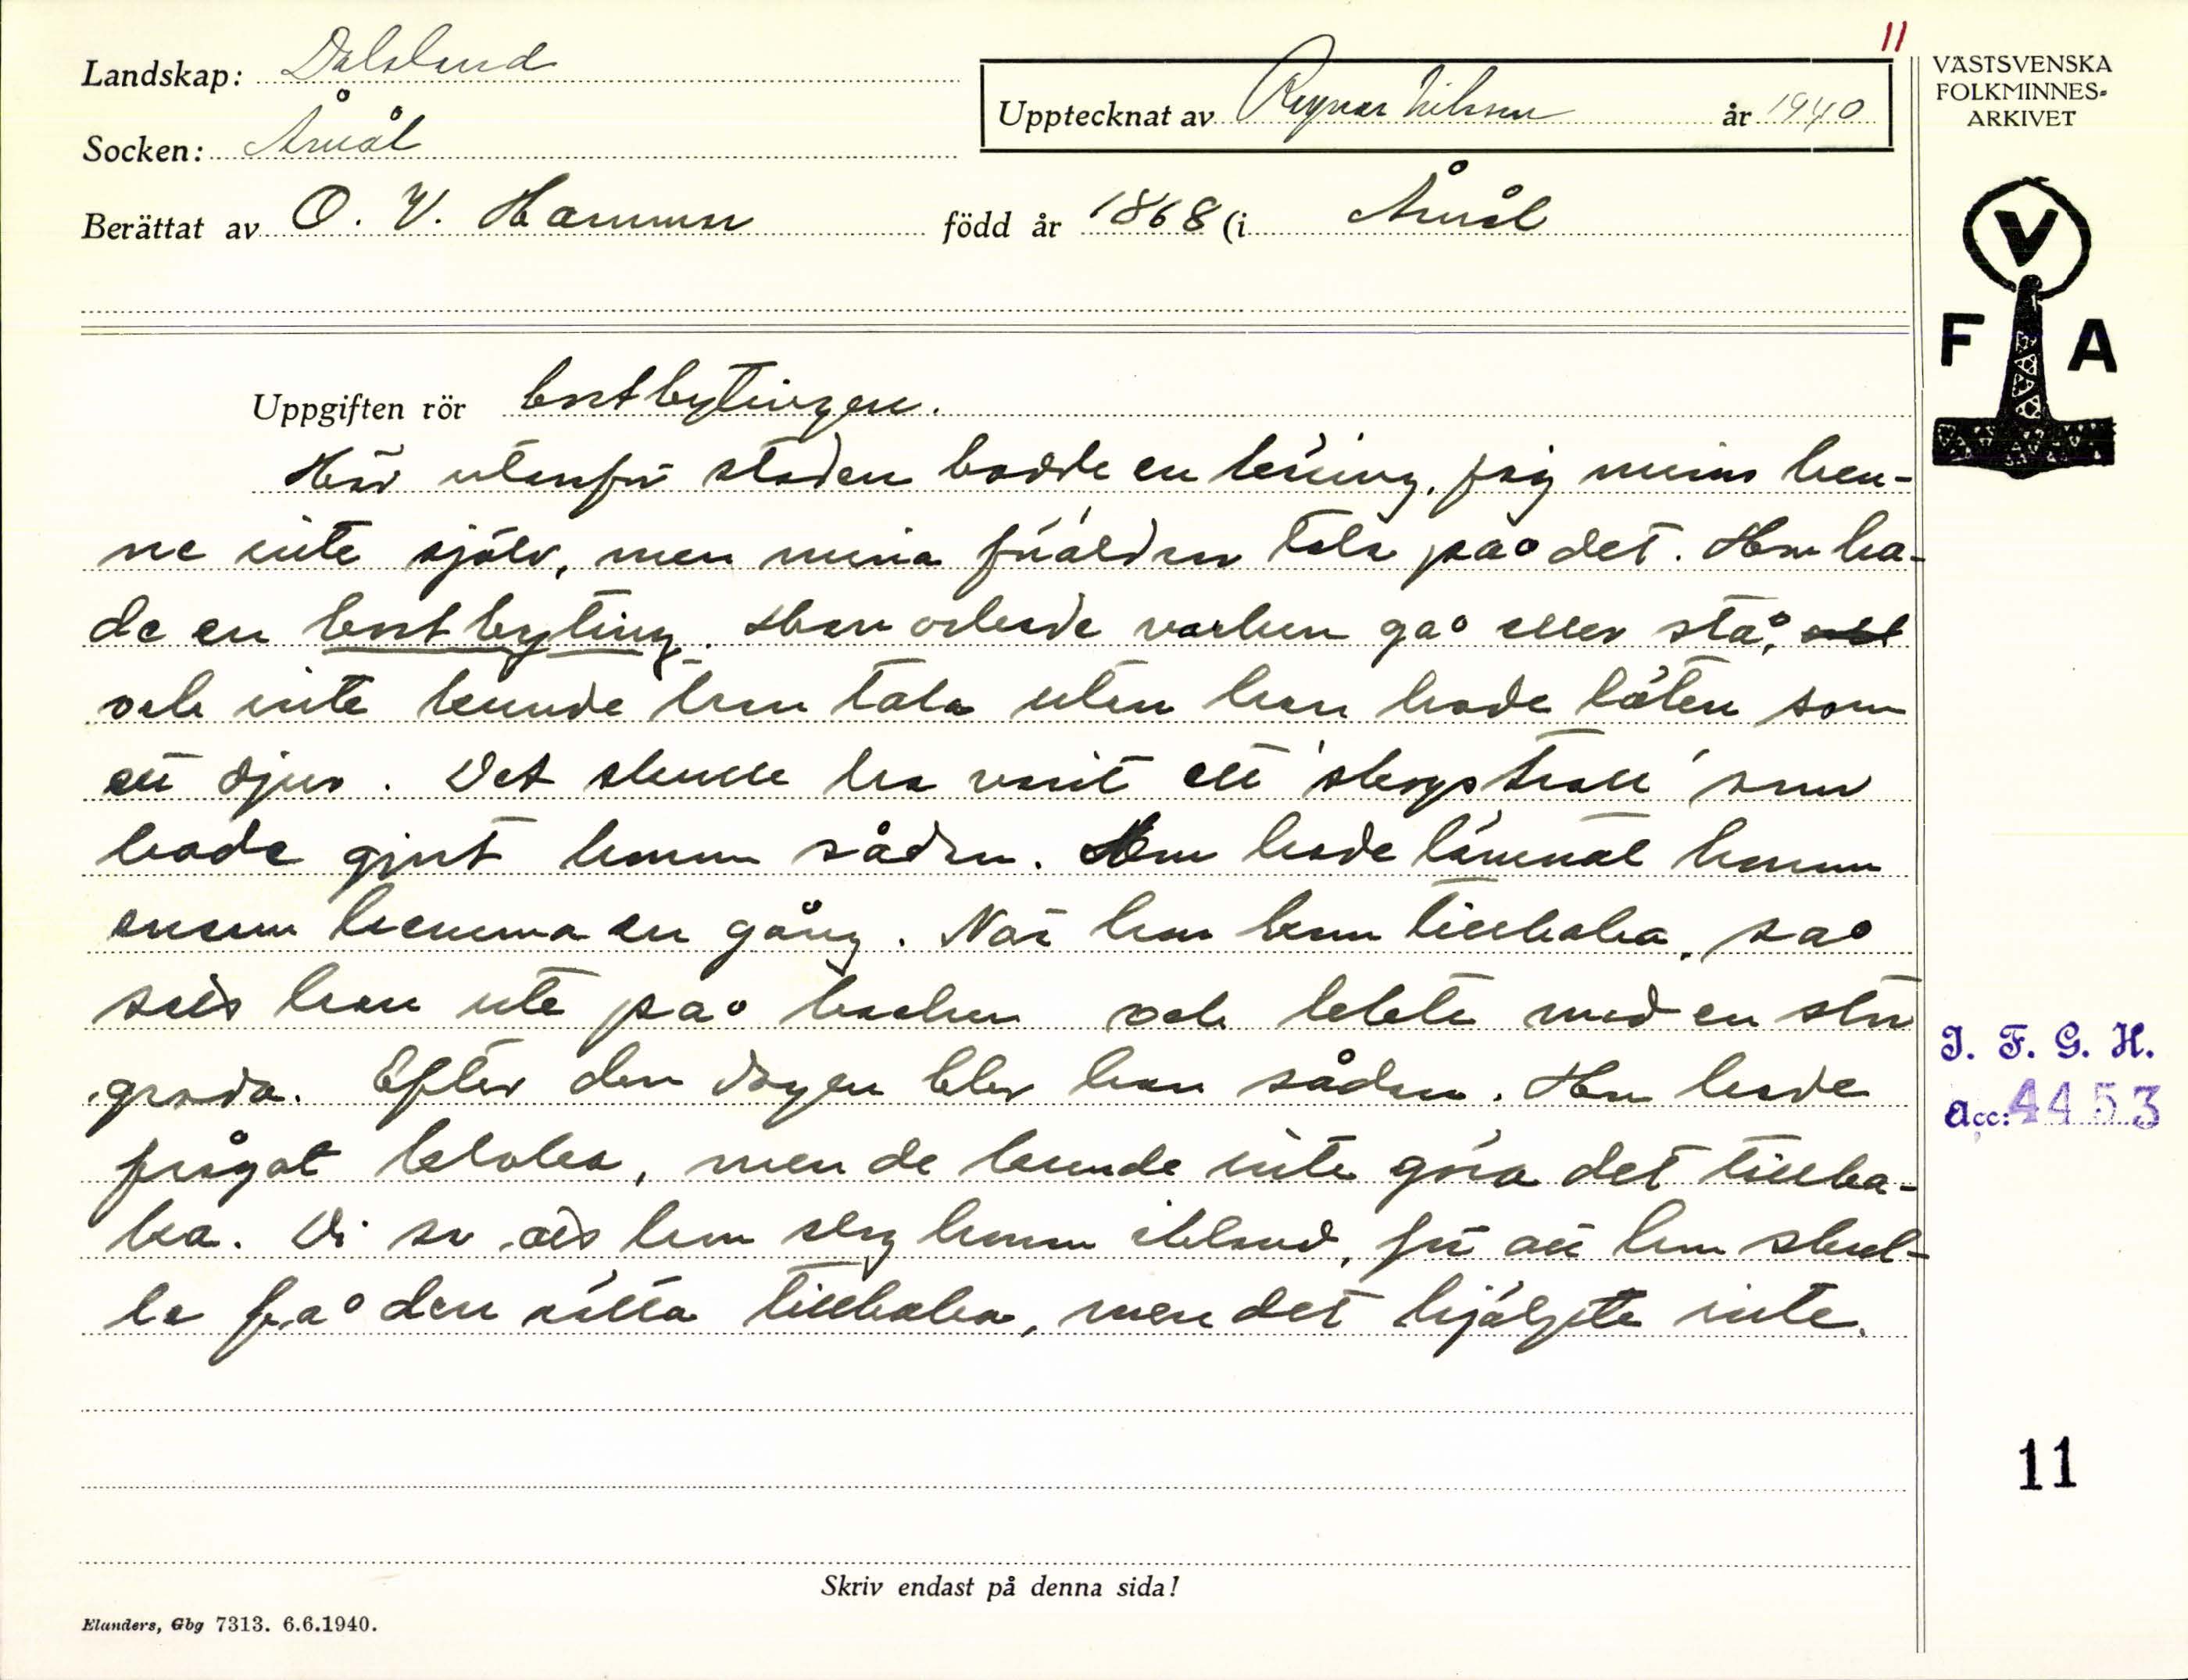 11
Landskap: Dalsland
Upptecknat av Ragnar Nilsson år 1940
Socken: Åmål
Berättat av O. V. Hammar född år 1868 (i Åmål
VÄSTSVENSKA
FOLKMINNES-
ARKIVET
V
F A
Uppgiften rör bortbytingen.
Här utanför staden bodde en käring, jag minns hen-
ne inte själv, men mina föräldrar tala på det. Hon ha-
de en bortbyting. Han orkade varken gå eller stå,
och inte kunde han tala utan han hade läten som
ett djur. Det skulle ha varit ett 'skogstroll' som
hade gjort honom sådan. Hon hade lämnat honom
ensam hemma en gång. När hon kom tillbaka, så
satt han ute på backen och lekte med en stor
groda. Efter den dagen blev han sådan. Hon hade
frågat kloka, men de kunde inte göra det tillba-
ka. Di sa att hon slog honom ibland, för att hon skul-
le få den rätta tillbaka, men det hjälpte inte.
I. F. G. H.
Acc: 4453
11
Skriv endast på denna sida!
Elanders, Gbg 7313. 6.6.1940.